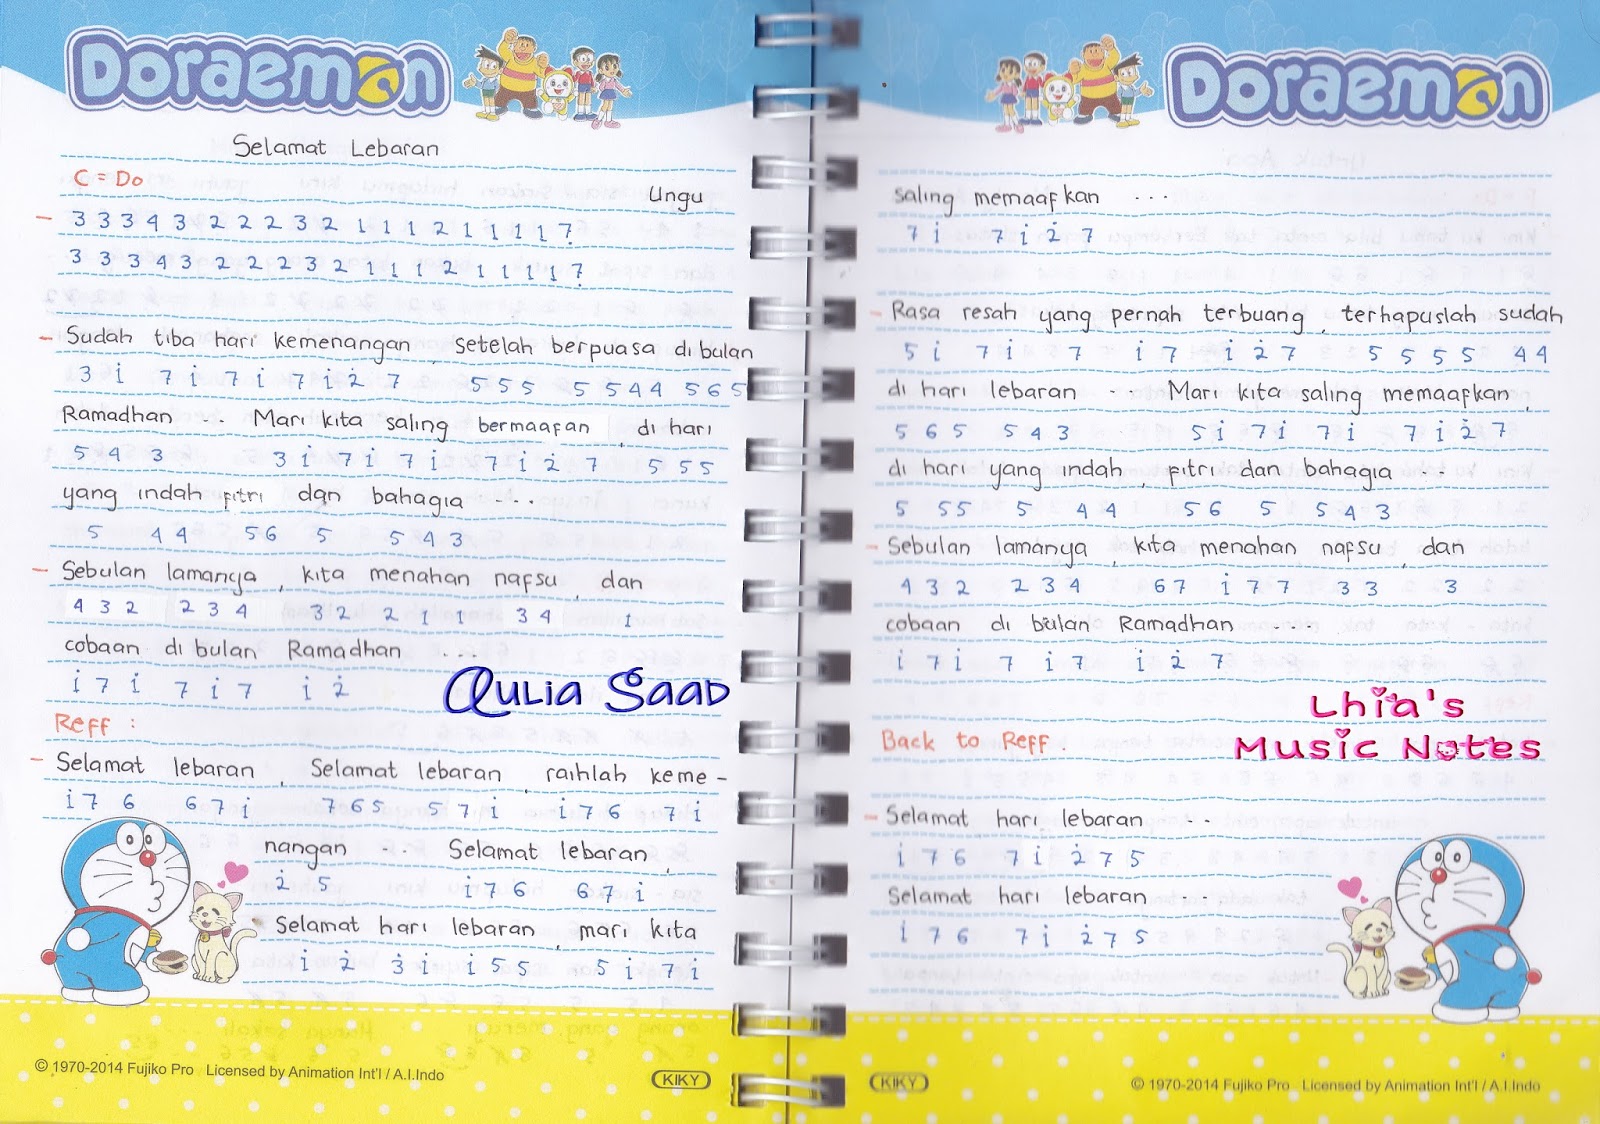 Doraemon
Selamat Lebaran
C = Do
Ungu
- 3 3 3 4 3 2 2 2 3 2 1 1 1 2 1 1 1 1 7̣
3 3 3 4 3 2 2 2 3 2 1 1 1 2 1 1 1 1 7̣
- Sudah tiba hari kemenangan, setelah berpuasa di bulan
3 i 7 i 7 i 7 i 2̇ 7 5 5 5 5 5 4 4 5 6 5
Ramadhan ... Mari kita saling bermaafan, di hari
5 4 3 3 i 7 i 7 i 7 i 2̇ 7 5 5 5
yang indah fitri dan bahagia ...
5 4 4 5 6 5 5 4 3
- Sebulan lamanya, kita menahan nafsu, dan
4 3 2 2 3 4 3 2 2 1 1 3 4 i
cobaan di bulan Ramadhan ...
i 7 i 7 i 7 i 2̇
Aulia Saad
Reff :
- Selamat lebaran, Selamat lebaran, raihlah keme -
i 7 6 6 7 i 7 6 5 5 7 i i 7 6 7 i
nangan ... Selamat lebaran,
2̇ 5 i 7 6 6 7 i
Selamat hari lebaran, mari kita
i 2̇ 3̇ i i 5 5 5 i 7 i
© 1970-2014 Fujiko Pro Licensed by Animation Int'l / A.I.Indo
KIKY
Doraemon
saling memaafkan ...
7 i 7 i 2̇ 7
- Rasa resah yang pernah terbuang, terhapuslah sudah
5 i 7 i 7 i 7 i 2̇ 7 5 5 5 5 4 4
di hari lebaran ... Mari kita saling memaafkan,
5 6 5 5 4 3 5 i 7 i 7 i 7 i 2̇ 7
di hari yang indah, fitri dan bahagia ...
5 5 5 5 4 4 5 6 5 5 4 3
- Sebulan lamanya, kita menahan nafsu, dan
4 3 2 2 3 4 6 7 i 7 7 3 3 3
cobaan di bulan Ramadhan ...
i 7 i 7 i 7 i 2̇ 7
Lhia's
Music Notes
Back to Reff.
- Selamat hari lebaran ...
i 7 6 7 i 2̇ 7 5
Selamat hari lebaran ...
i 7 6 7 i 2̇ 7 5
KIKY
© 1970-2014 Fujiko Pro Licensed by Animation Int'l / A.I.Indo